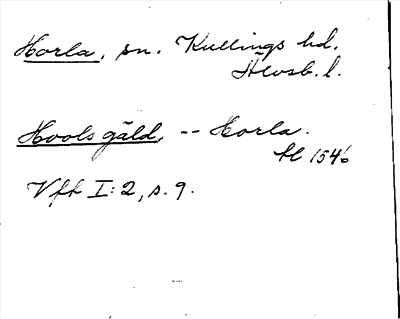 Horla, sn. Kullings hd.
Älvsb. l.
Hools gäld, -- Horla.
1546
Vff I:2, s. 9.